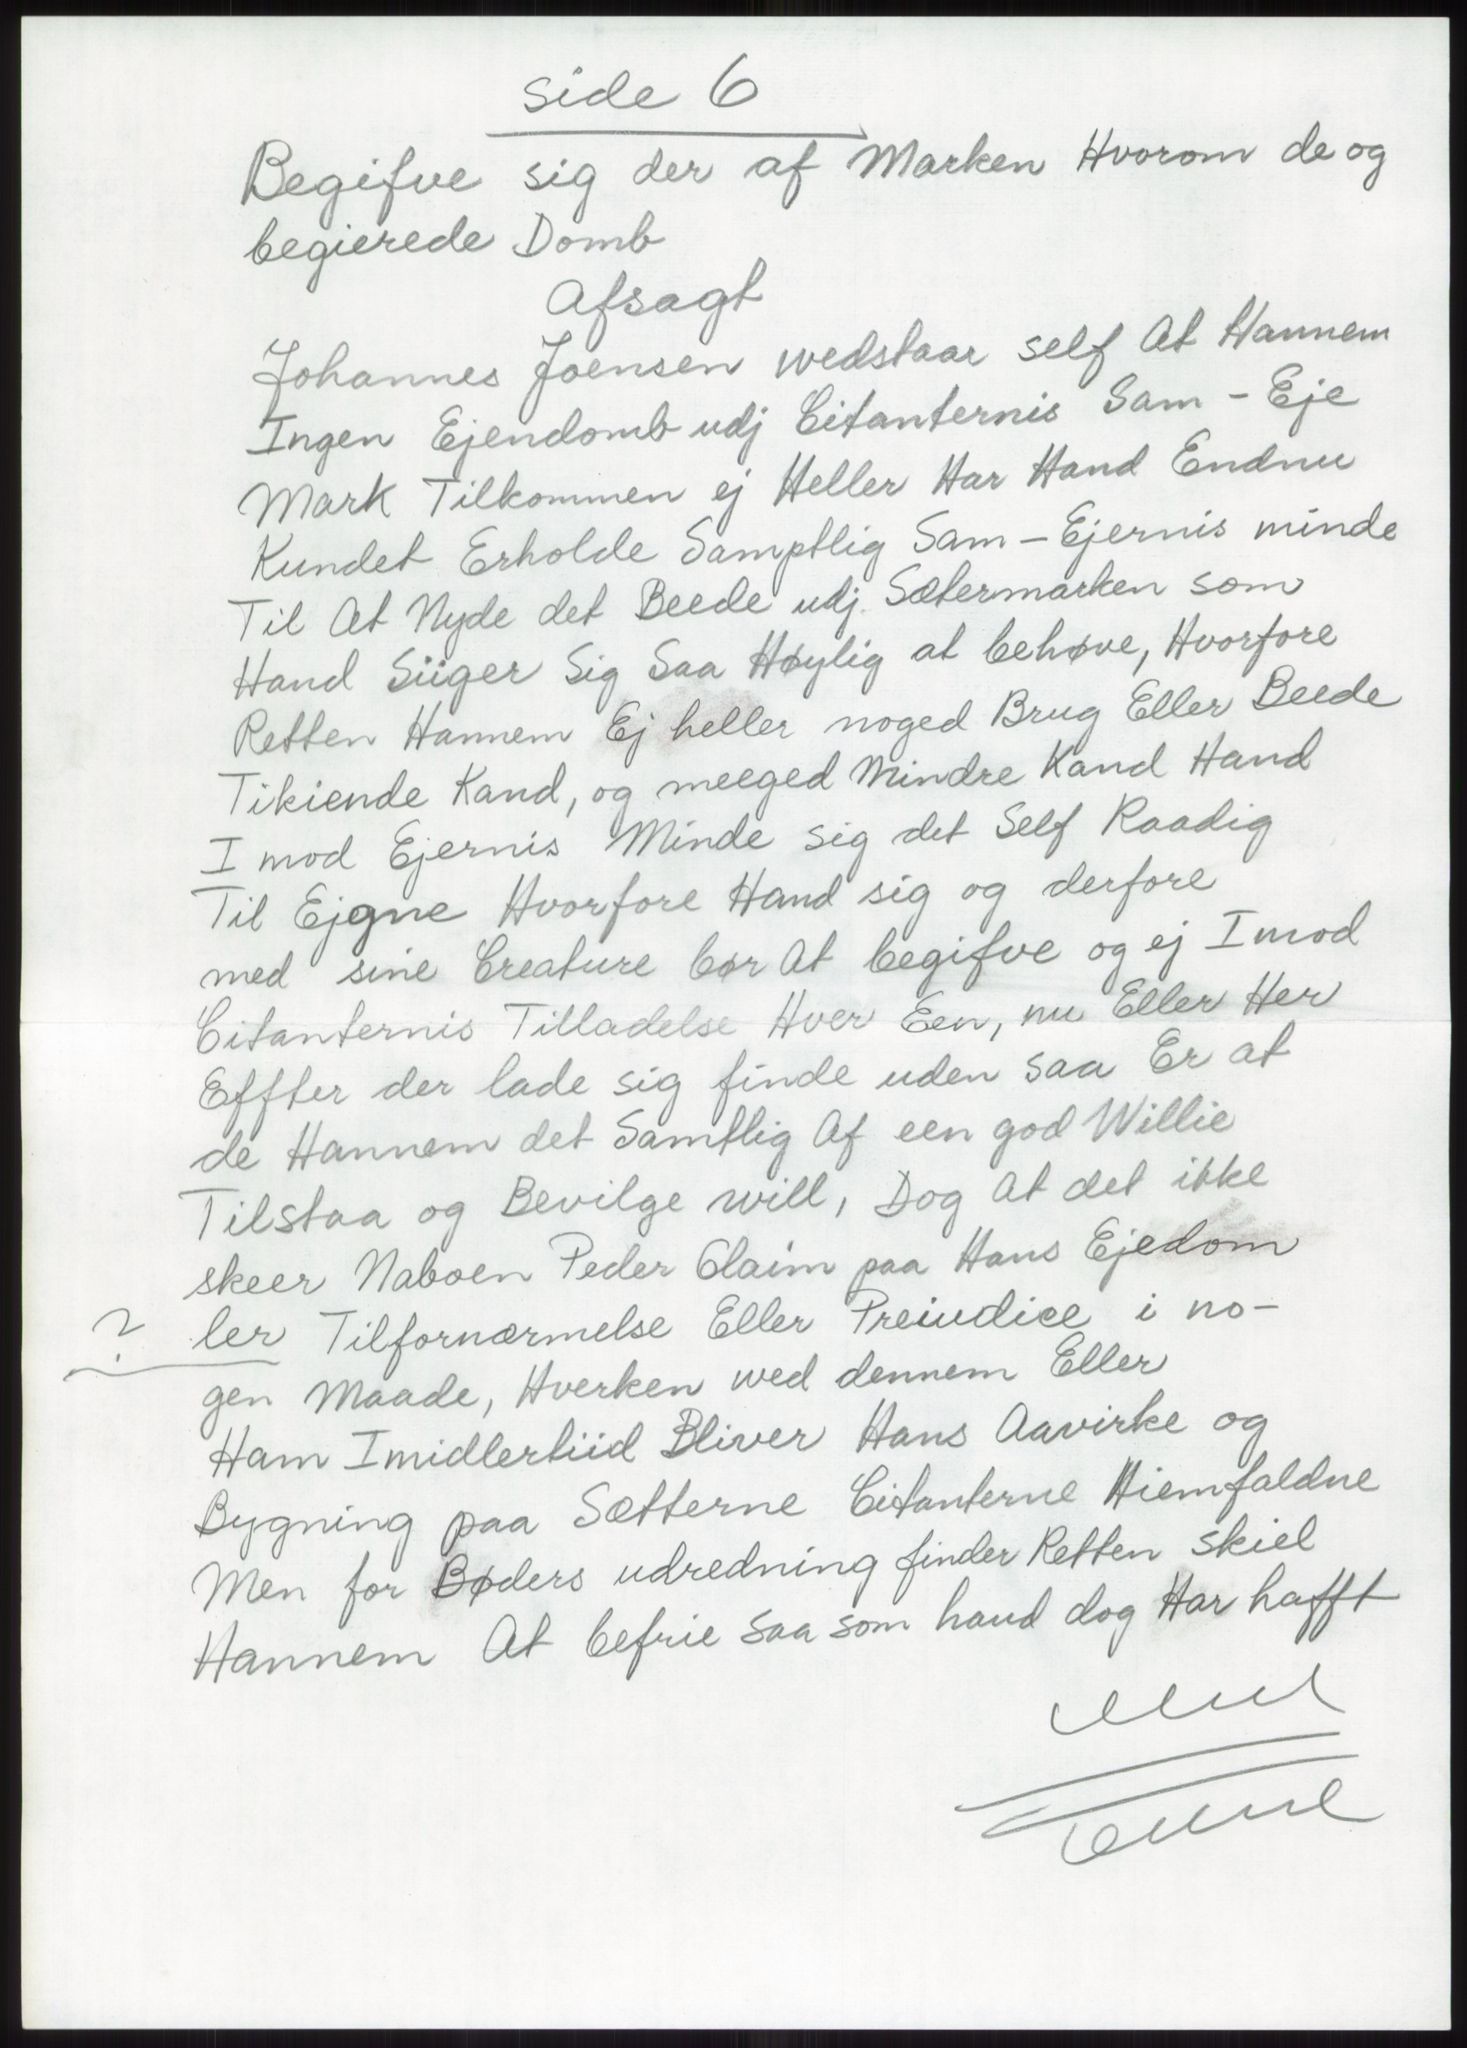 side 6
Begifve sig der af Marken Hvorom de og
begierede Domb
Afsagt
Johannes Joensen wedstaar self At Hannem
Ingen Ejendomb udj Citanternis Sam - Eje
Mark Tilkommen ej Heller Har Hand Endnu
Kundet Erholde Samptlig Sam - Ejernis minde
Til At Nyde det Beede udj Sætermarken som
Hand Siiger Sig Saa Høylig at behøve, Hvorfore
Retten Hannem Ej heller noged Brug Eller Beede
Tikiende Kand, og meeged Mindre Kand Hand
I mod Ejernis Minde sig det Self Raadig
Til Ejgne Hvorfore Hand sig og derfore
med sine Creature bør At begifve og ej Imod
Citanternis Tilladelse Hver Een, nu Eller Her
Effter der lade sig finde uden saa Er at
de Hannem det Samtlig Af een god Willie
Tilstaa og Bevilge will, Dog At det ikke
skeer Naboen Peder Olaim paa Hans Ejedom
? ler Tilfornærmelse Eller Preiudice i no-
gen Maade, Hverken wed dennem Eller
Ham Imidlertiid Bliver Hans Aavirke og
Bygning paa Sætterne Citanterne Hiemfaldne
Men for Bøders udredning finder Retten skiel
Hannem At befrie saa som hand dog Har hafft